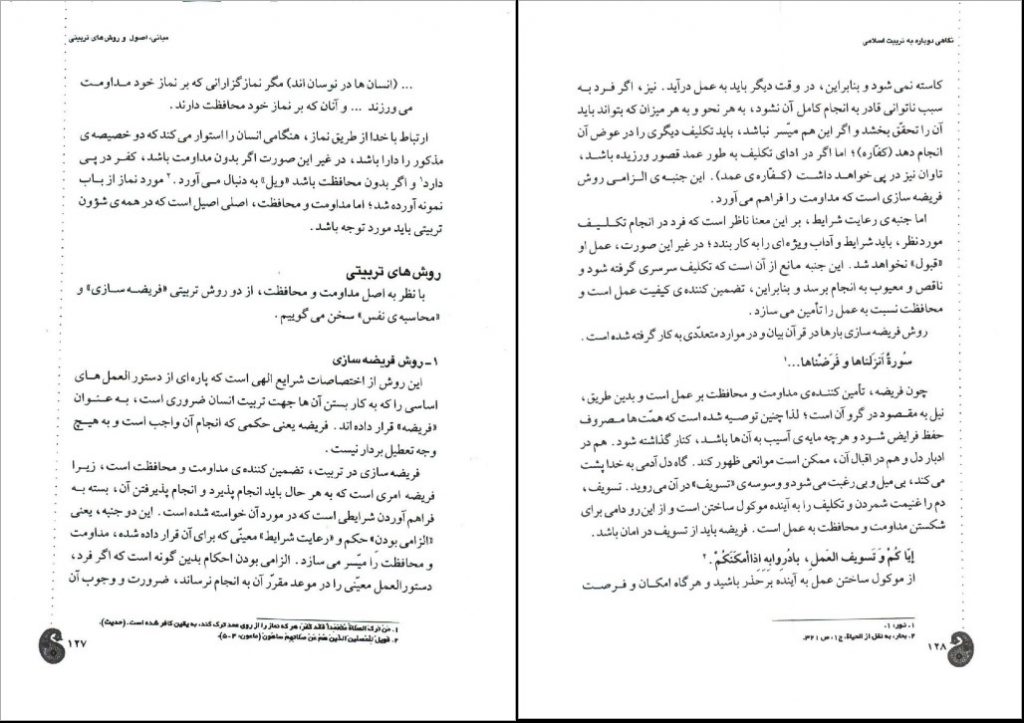 مبانی، اصول و روش‌های تربیتی
... (انسان ها در نوسان اند) مگر نمازگزارانی که بر نماز خود مداومت
می‌ورزند ... و آنان که بر نماز خود محافظت دارند.
ارتباط با خدا از طریق نماز، هنگامی انسان را استوار می‌کند که دو خصیصه ی
مذکور را دارا باشد، در غیر این صورت اگر بدون مداومت باشد، کفر در پی
دارد۱ و اگر بدون محافظت باشد «ویل» به دنبال می‌آورد.۲ مورد نماز از باب
نمونه آورده شد؛ اما مداومت و محافظت، اصلی اصیل است که در همه ی شؤون
تربیتی باید مورد توجه باشد.
روش های تربیتی
با نظر به اصل مداومت و محافظت، از دو روش تربیتی «فریضه سازی» و
«محاسبه ی نفس» سخن می گوییم.
۱ـ روش فریضه سازی
این روش از اختصاصات شرایع الهی است که پاره ای از دستور العمل های
اساسی را که به کار بستن آن ها جهت تربیت انسان ضروری است، به عنوان
«فریضه» قرار داده اند. فریضه یعنی حکمی که انجام آن واجب است و به هیچ
وجه تعطیل بردار نیست.
فریضه سازی در تربیت، تضمین کننده ی مداومت و محافظت است، زیرا
فریضه امری است که به هر حال باید انجام پذیرد و انجام پذیرفتن آن، بسته به
فراهم آوردن شرایطی است که در مورد آن خواسته شده است. این دو جنبه، یعنی
«الزامی بودن» حکم و «رعایت شرایط» معیّنی که برای آن قرار داده شده، مداومت
و محافظت را میسر می سازد. الزامی بودن احکام بدین گونه است که اگر فرد،
دستورالعمل معیّنی را در موعد مقرّر آن به انجام نرساند، ضرورت و وجوب آن
۱. من ترک الصلاة متعمداً فقد کفر، هر که نماز را از روی عمد ترک کند، به یقین کافر شده است. (حدیث).
۲. فویل للمصلین الذین هم عن صلاتهم ساهون (ماعون، ۴-۵).
۱۲۷
نگاهی دوباره به تربیت اسلامی
کاسته نمی شود و بنابراین، در وقت دیگر باید به عمل درآید. نیز، اگر فرد به
سبب ناتوانی قادر به انجام کامل آن نشود، به هر نحو و به هر میزان که بتواند باید
آن را تحقّق بخشد و اگر این هم میّسر نباشد، باید تکلیف دیگری را در عوض آن
انجام دهد (کفّاره)؛ اما اگر در ادای تکلیف به طور عمد قصور ورزیده باشد،
تاوان نیز در پی خواهد داشت (کفّاره‌ی عمد). این جنبه ی الزامی روش
فریضه سازی است که مداومت را فراهم می آورد.
اما جنبه ی رعایت شرایط، بر این معنا ناظر است که فرد در انجام تکلیف
مورد نظر، باید شرایط و آداب ویژه ای را به کار بندد؛ در غیر این صورت، عمل او
«قبول» نخواهد شد. این جنبه مانع از آن است که تکلیف سرسری گرفته شود و
ناقص و معیوب به انجام برسد و بنابراین، تضمین کننده ی کیفیت عمل است و
محافظت نسبت به عمل را تأمین می سازد.
روش فریضه سازی بارها در قرآن بیان و در موارد متعدّدی به کار گرفته شده است.
سُورةُ اَنزَلناها و فَرَضْناها...۱
چون فریضه، تأمین کننده ی مداومت و محافظت بر عمل است و بدین طریق،
نیل به مقصود در گرو آن است؛ لذا چنین توصیه شده است که همّت‌ها مصروف
حفظ فرایض شود و هرچه مایه ی آسیب به آن‌ها باشد، کنار گذاشته شود. هم در
ادبار دل و هم در اقبال آن، ممکن است موانعی ظهور کند. گاه دل آدمی به خدا پشت
می کند، بی میل و بی رغبت می شود و وسوسه ی «تسویف» در آن می روید. تسویف،
دم را غنیمت شمردن و تکلیف را به آینده موکول ساختن است و از این رو دامی برای
شکستن مداومت و محافظت به عمل است. فریضه باید از تسویف در امان باشد.
إیّا کُمْ وَ تَسویف العَمل، بادُروا بِه اِذا اَمکَنَکُمْ.۲
از موکول ساختن عمل به آینده برحذر باشید و هرگاه امکان و فرصت
۱ـ نور: ۱.
۲. بحار، به نقل از الحیاة، ج۱، ص ۳۲۱.
۱۲۸